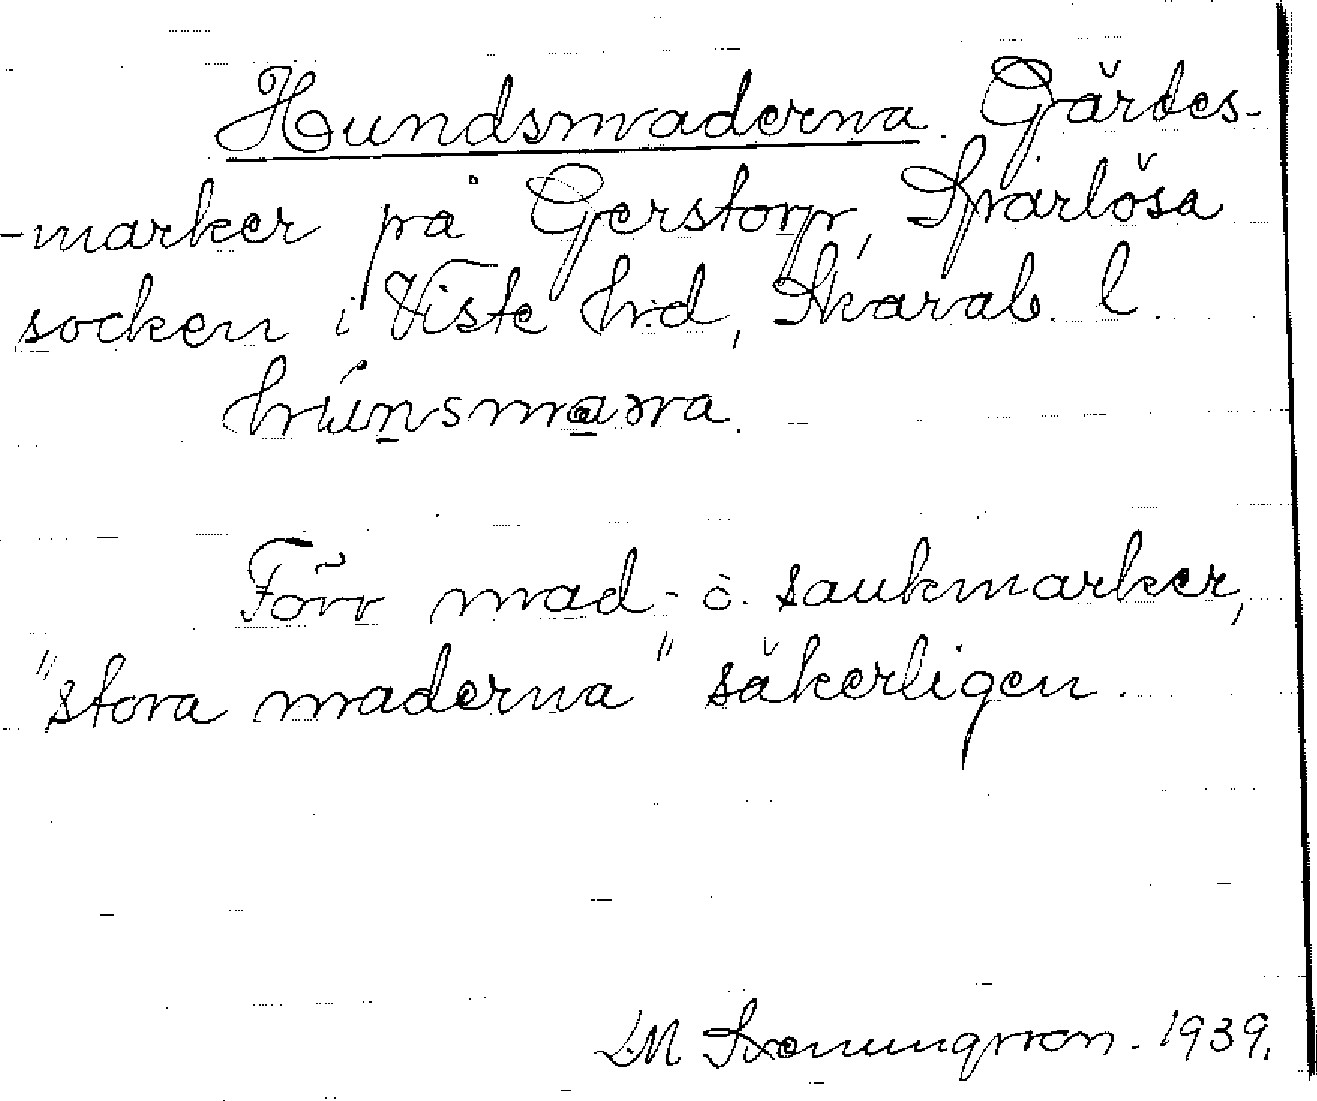 Hundsmaderna. Gärdes-
-marker på Gerstorp, Sparlösa
socken i Viste hrd, Skarab. l.
Förr mad- o. sankmarker,
"stora maderna" säkerligen.
LM 1939.